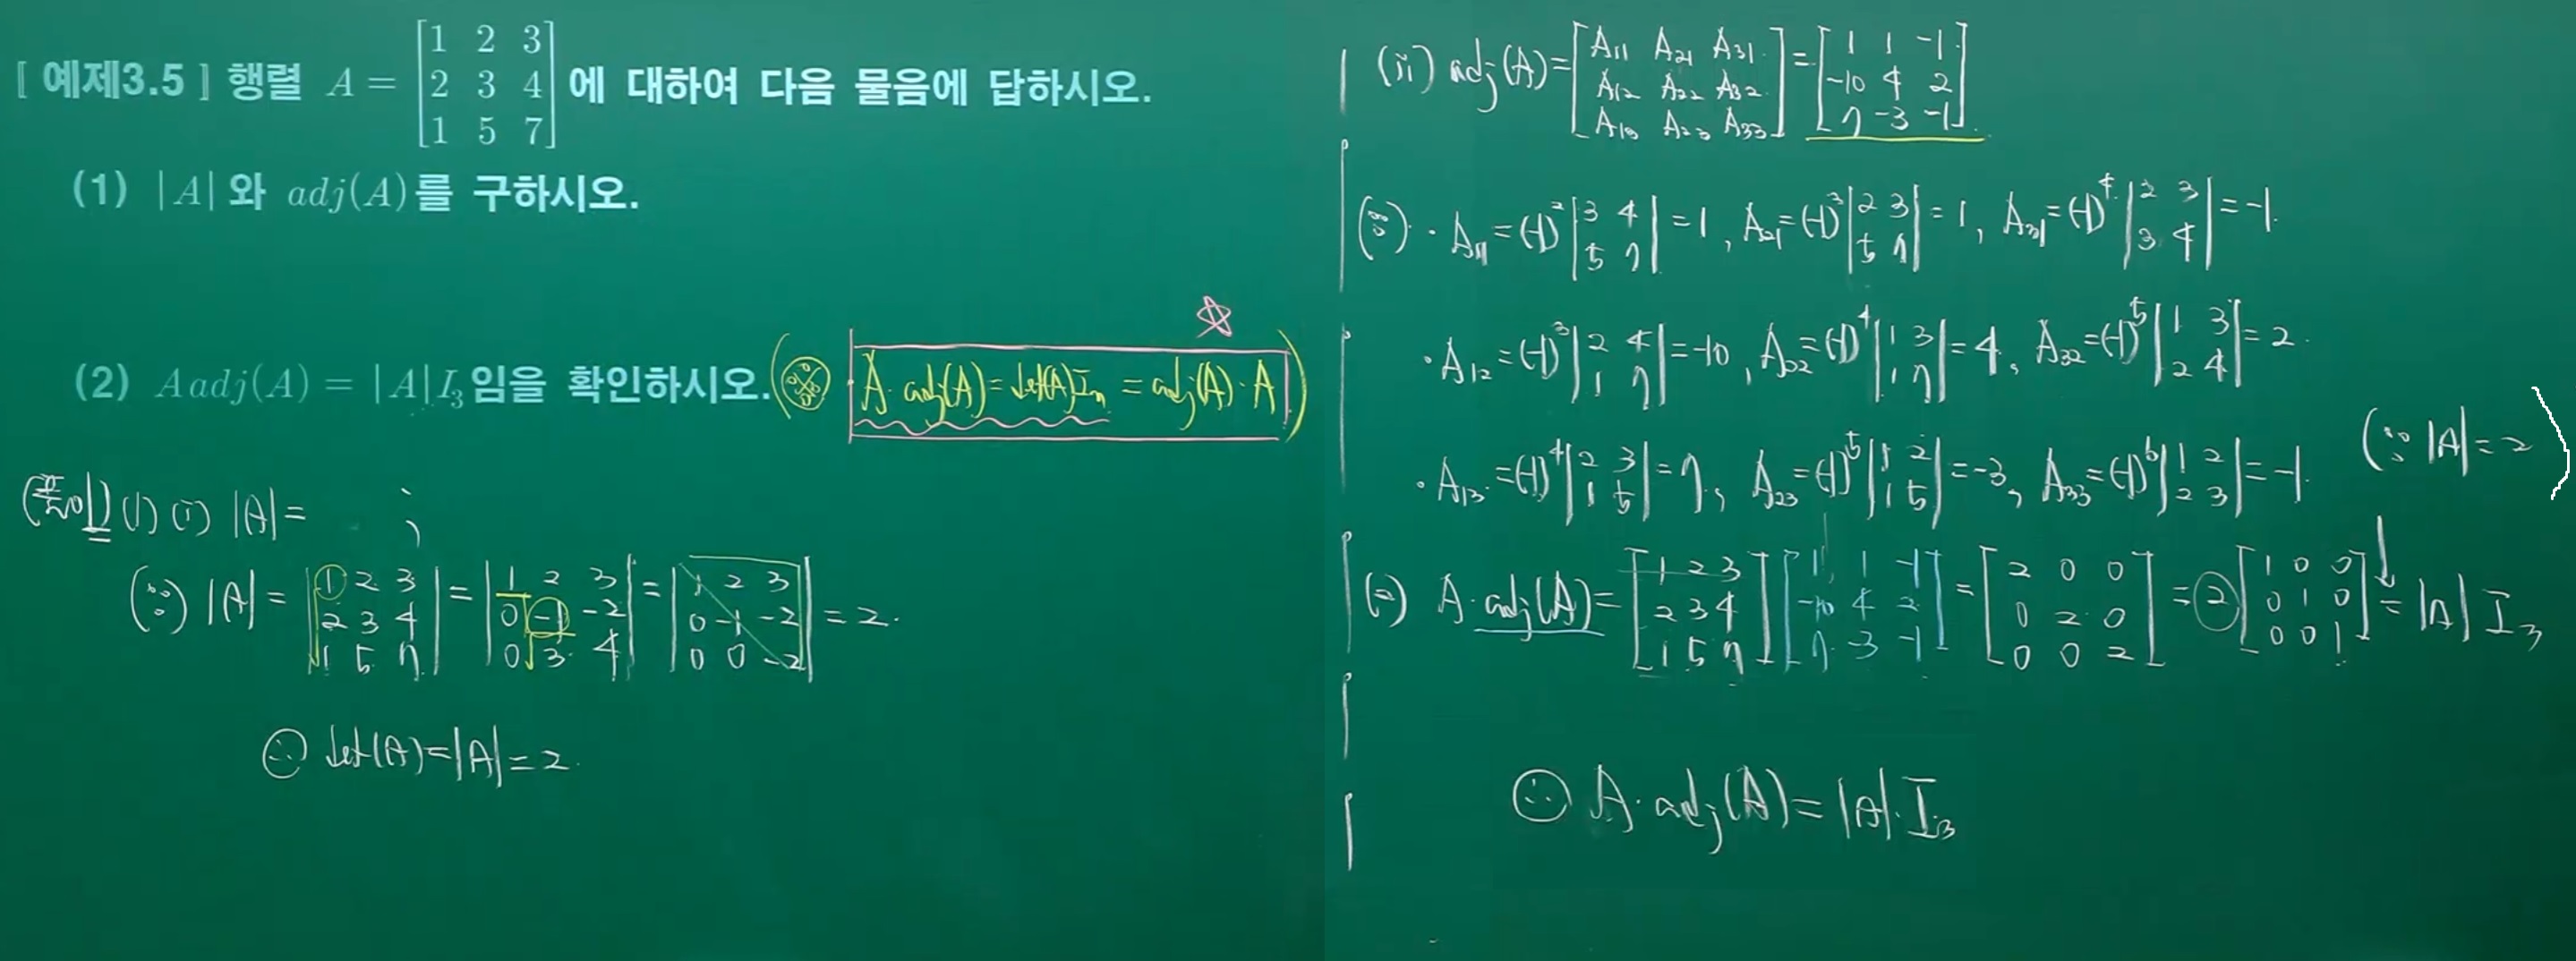 [ 예제3.5 ] 행렬 A = [1 2 3; 2 3 4; 1 5 7] 에 대하여 다음 물음에 답하시오.
(1) |A| 와 adj(A)를 구하시오.
(2) A adj(A) = |A|I₃임을 확인하시오. (※ A·adj(A) = det(A)Iₙ = adj(A)·A)
(풀이) (1) (i) |A| = ;
(∵) |A| = |1 2 3; 2 3 4; 1 5 7| = |1 2 3; 0 -1 -2; 0 3 4| = |1 2 3; 0 -1 -2; 0 0 -2| = 2.
∴ det(A) = |A| = 2.
(ii) adj(A) = [A₁₁ A₂₁ A₃₁; A₁₂ A₂₂ A₃₂; A₁₃ A₂₃ A₃₃] = [1 1 -1; -10 4 2; 7 -3 -1].
(∵) · A₁₁ = (-1)² |3 4; 5 7| = 1, A₂₁ = (-1)³ |2 3; 5 7| = 1, A₃₁ = (-1)⁴ |2 3; 3 4| = -1.
· A₁₂ = (-1)³ |2 4; 1 7| = -10, A₂₂ = (-1)⁴ |1 3; 1 7| = 4, A₃₂ = (-1)⁵ |1 3; 2 4| = 2.
· A₁₃ = (-1)⁴ |2 3; 1 5| = 7, A₂₃ = (-1)⁵ |1 2; 1 5| = -3, A₃₃ = (-1)⁶ |1 2; 2 3| = -1.
(∵ |A| = 2)
(2) A·adj(A) = [1 2 3; 2 3 4; 1 5 7] [1 1 -1; -10 4 2; 7 -3 -1] = [2 0 0; 0 2 0; 0 0 2] = 2 [1 0 0; 0 1 0; 0 0 1] = |A| I₃
∴ A·adj(A) = |A|·I₃